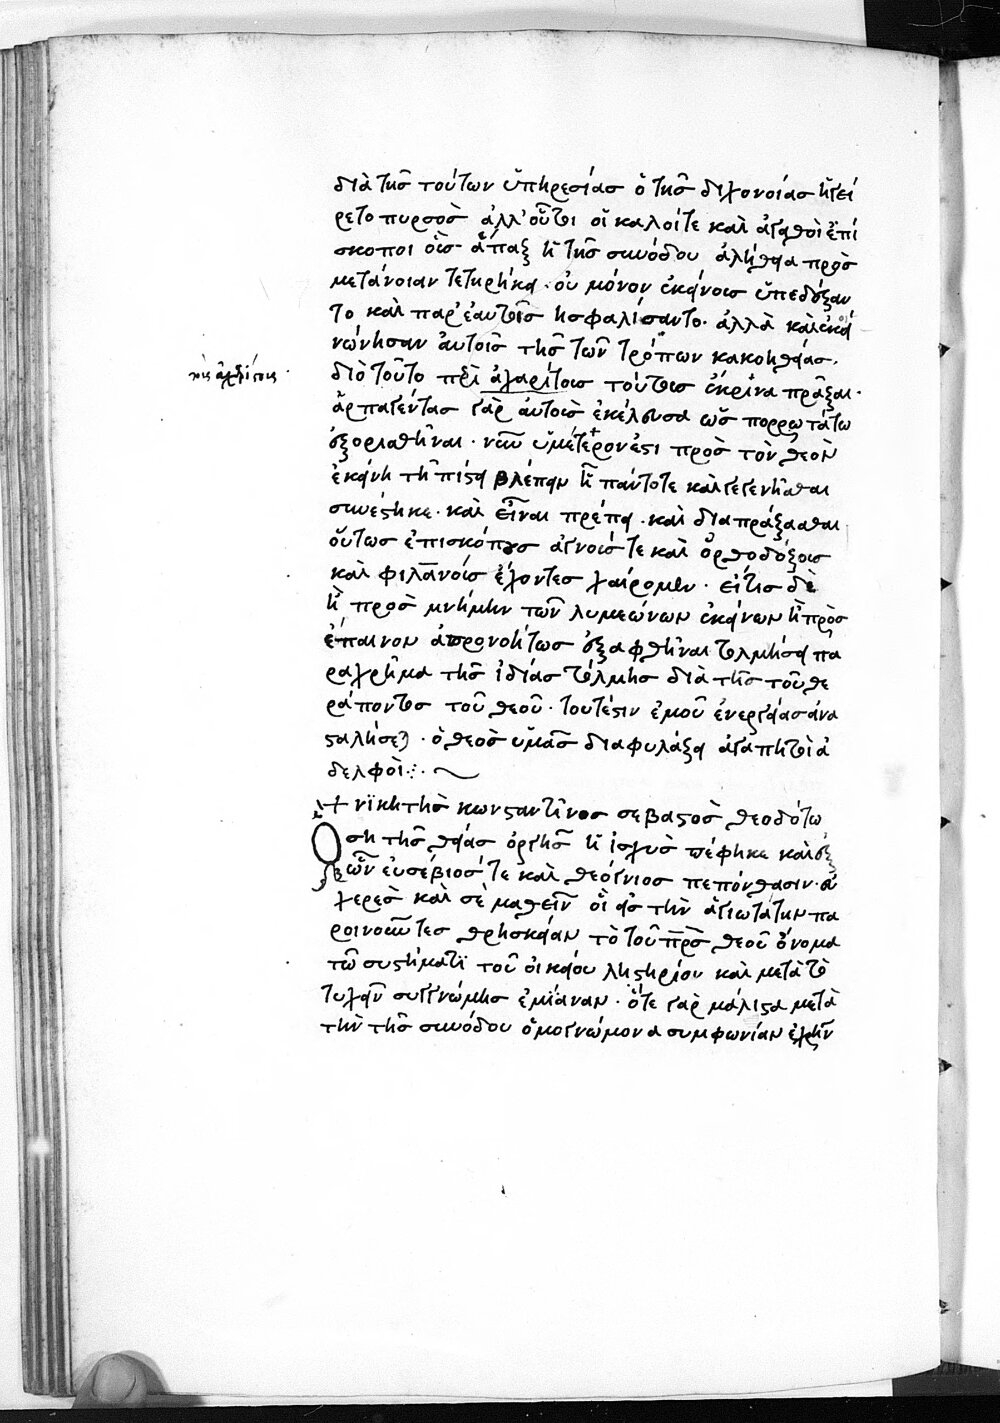 διὰ τῆς τούτων ὑπηρεσίας ὁ τῆς διχονοίας ἠγεί
ρετο πυρσός ἀλλ' οὗτοι οἱ καλοί τε καὶ ἀγαθοὶ ἐπί
σκοποι οἷς ἅπαξ ἡ τῆς συνόδου ἀλήθεια πρὸς
μετάνοιαν τετηρήκει. οὐ μόνον ἐκείνους ὑπεδέξαν
το καὶ παρ' ἑαυτοῖς ἠσφαλίσαντο. ἀλλὰ καὶ ἐκοι
νώνησαν αὐτοῖς τῆς τῶν τρόπων κακοηθείας.
τοῖς ἀχαρίστοις
διὸ τοῦτο περὶ ἀχαρίστοις τούτοις ἔκρινα πρᾶξαι.
ἁρπαγέντας γὰρ αὐτοὺς ἐκέλευσα ὡς πορρωτάτω
ἐξορισθῆναι. νῦν ὑμέτερον ἐστι πρὸς τὸν θεὸν
ἐκείνη τῇ πίστει βλέπειν ᾗ πάντοτε καὶ γεγενῆσθαι
συνέστηκε. καὶ εἶναι πρέπει. καὶ διαπράξασθαι
οὕτως ἐπισκόπους ἁγνούς τε καὶ ὀρθοδόξους
καὶ φιλανους ἔχοντες χαίρομεν. εἴ τις δὲ
ἢ πρὸς μνήμην τῶν λυμεώνων ἐκείνων ἢ πρὸς
ἔπαινον ἀπρονοήτως ἐξαφθῆναι τολμήσει πα
ραχρῆμα τῆς ἰδίας τόλμης διὰ τῆς τοῦ θε
ράποντος τοῦ θεοῦ. τουτέστιν ἐμοῦ ἐνεργείας ἀνα
σταλήσεται. ὁ θεὸς ὑμᾶς διαφυλάξει ἀγαπητοὶ ἀ
δελφοί:
+ νικητὴς κωνσταντῖνος σεβαστὸς θεοδότω
Ὅση τῆς θείας ὀργῆς ἡ ἰσχὺς πέφηκε καὶ ἐξ
ὧν εὐσέβιός τε καὶ θεόγνιος πεπόνθασιν. εὐ
χερὲς καὶ σὲ μαθεῖν οἳ εἰς τὴν ἁγιωτάτην πα
ροινοῦντες θρησκείαν τὸ τοῦ προς θεοῦ ὄνομα
τῷ συστήματι τοῦ οἰκείου ληστηρίου καὶ μετὰ τὸ
τυχεῖν συγγνώμης ἐμίαναν. ὅτε γὰρ μάλιστα μετὰ
τὴν τῆς συνόδου ὁμογνώμονα συμφωνίαν ἐχρῆν